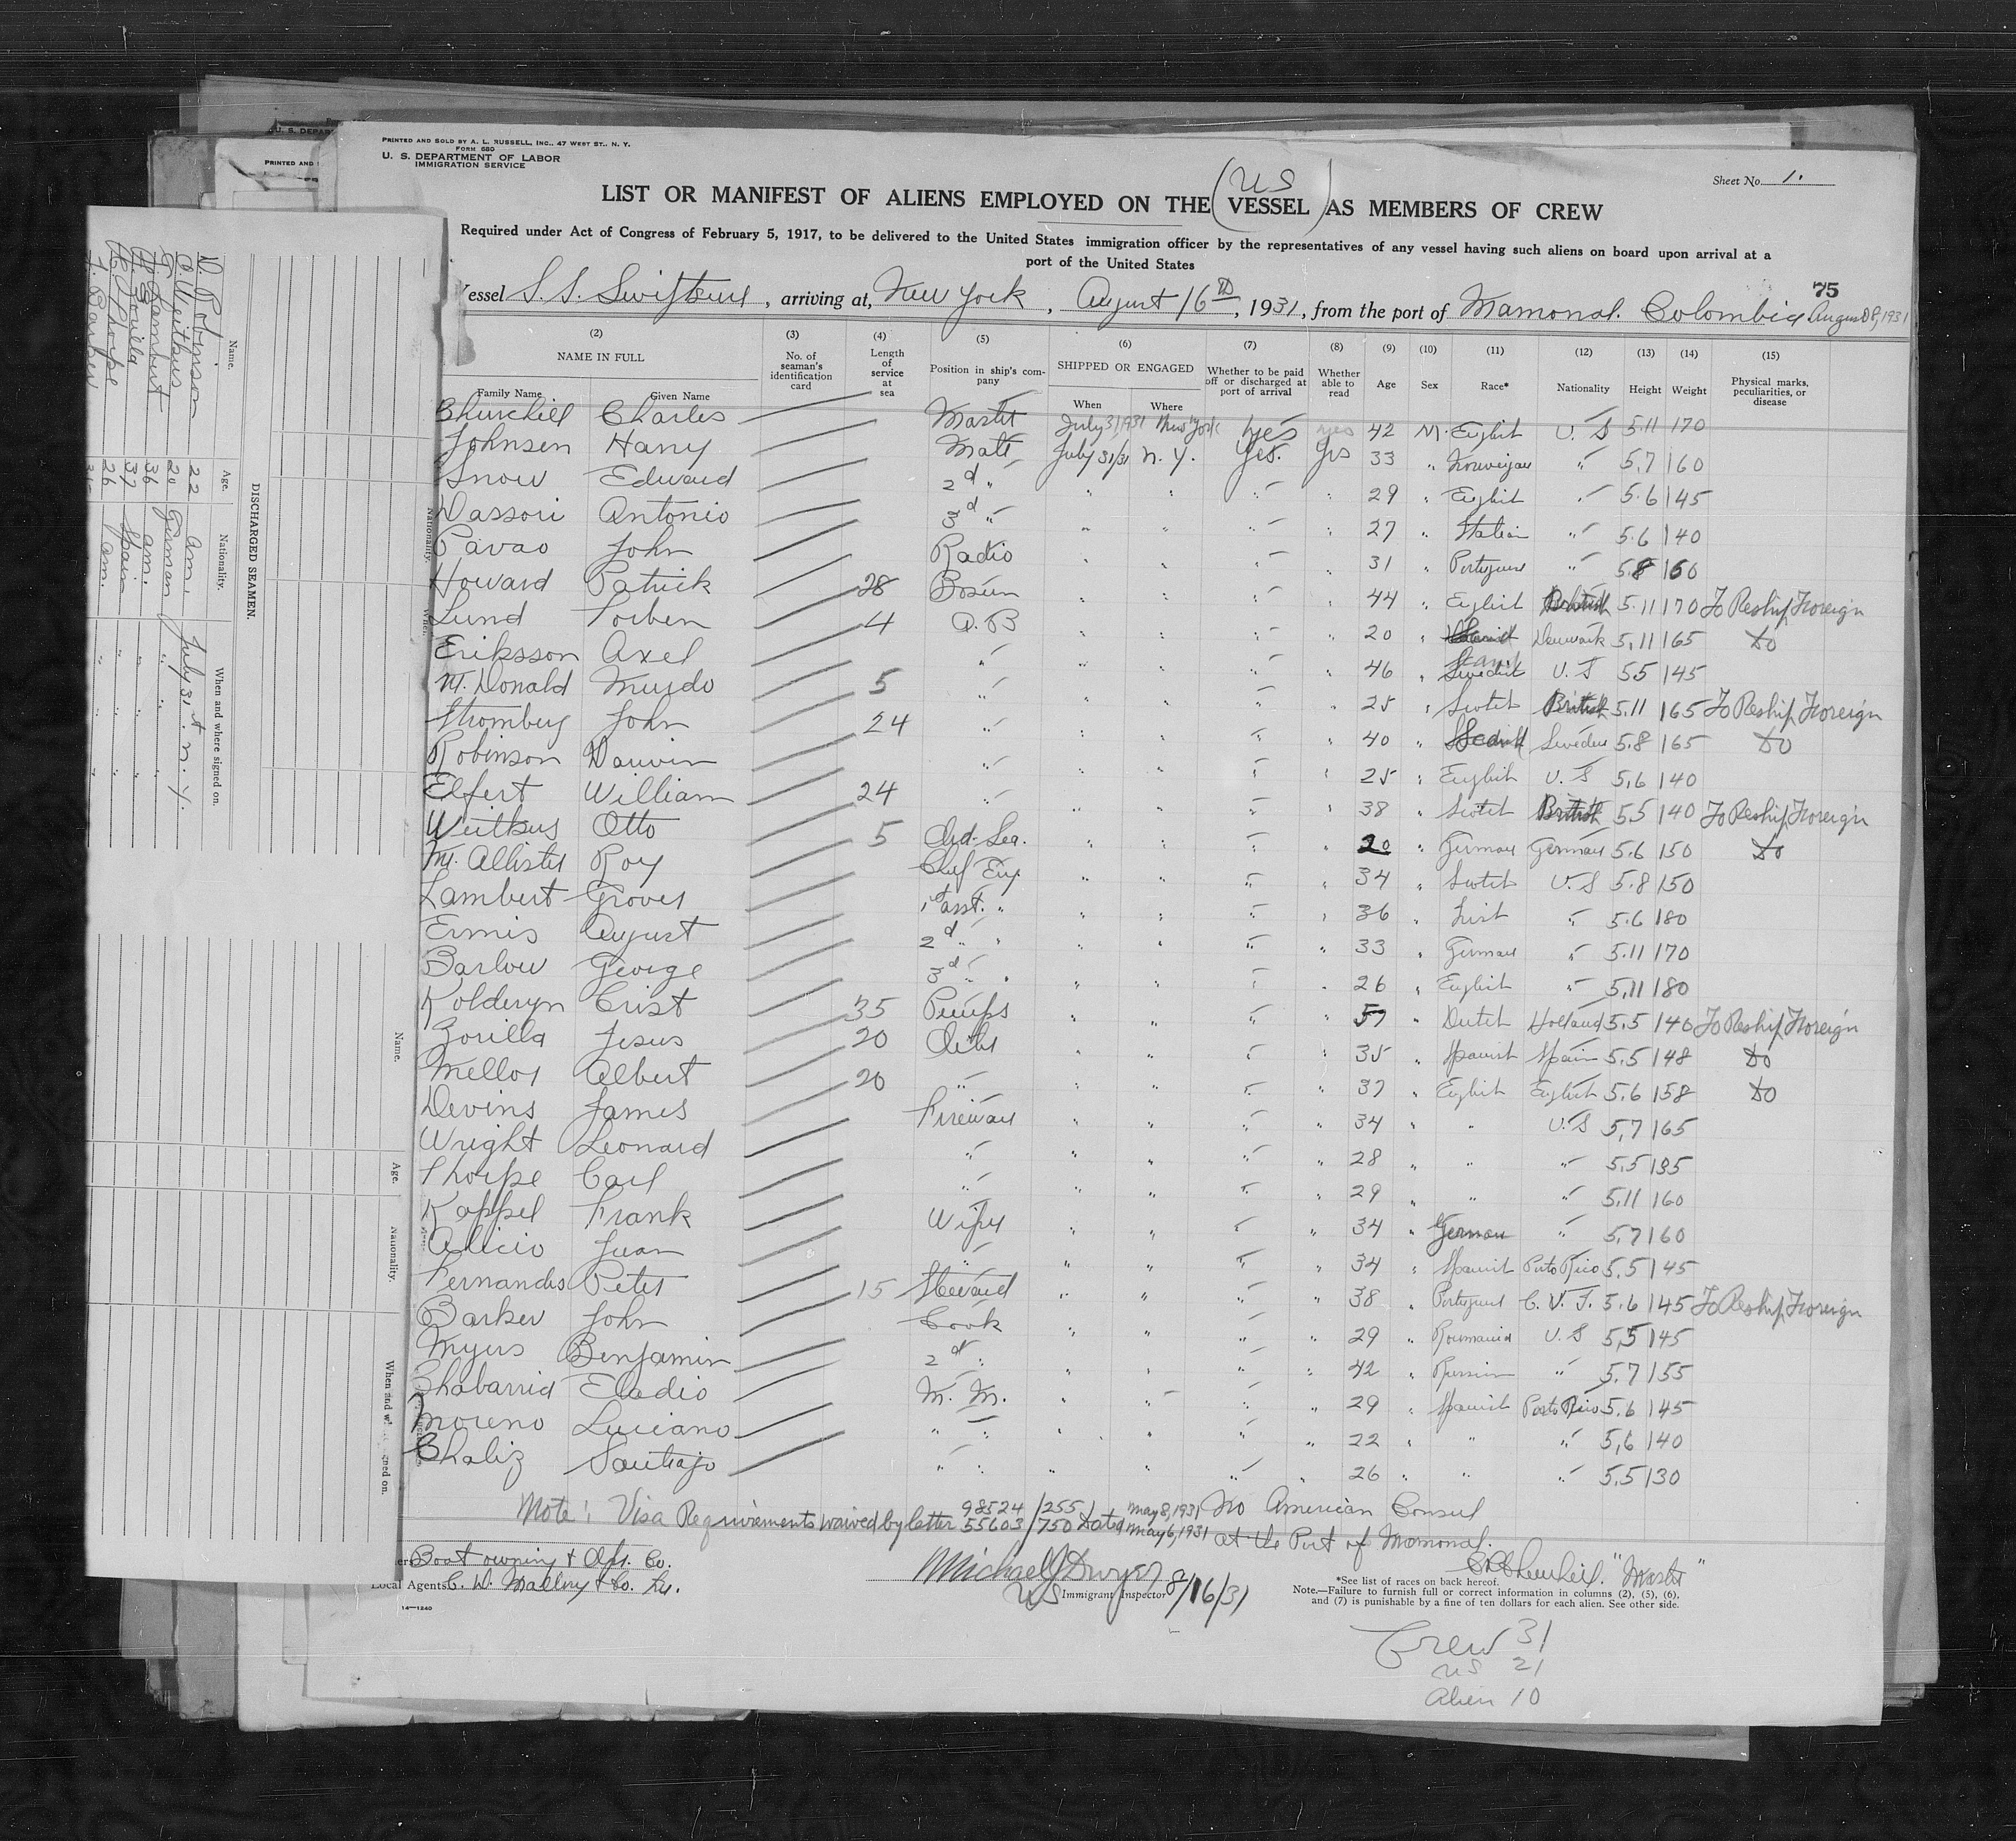 PRINTED AND SOLD BY A. L. RUSSELL, INC., 47 WEST ST., N. Y.
FORM 680
U. S. DEPARTMENT OF LABOR
IMMIGRATION SERVICE
Sheet No. 1.
US
LIST OR MANIFEST OF ALIENS EMPLOYED ON THE (VESSEL) AS MEMBERS OF CREW
Required under Act of Congress of February 5, 1917, to be delivered to the United States immigration officer by the representatives of any vessel having such aliens on board upon arrival at a
port of the United States
75
Vessel S. S. Swiftsure, arriving at, New York, August 16th, 1931, from the port of Mamonal. Colombia August 8, 1931
(2) (3) (4) (5) (6) (7) (8) (9) (10) (11) (12) (13) (14) (15)
NAME IN FULL No. of seaman's identification card Length of service at sea Position in ship's company SHIPPED OR ENGAGED Whether to be paid off or discharged at port of arrival Whether able to read Age Sex Race* Nationality Height Weight Physical marks, peculiarities, or disease
Family Name Given Name When Where
Churchill Charles Master July 31, 1931 New York yes yes 42 M. English U. S 5.11 170
Johnsen Harry Mate July 31/31 N. Y. Yes. Yes 33 " Norwegian " 5.7 160
Snow Edward 2d " " " " " 29 " English " 5.6 145
Dassori Antonio 3d " " " " " 27 " Italian " 5.6 140
Pavao John Radio " " " " 31 " Portuguese " 5.8 160
Howard Patrick 28 Bosun " " " " 44 " English British 5.11 170 To Reship Foreign
Lund Torben 4 A. B " " " " 20 " Denmark 5.11 165 Do
Eriksson Axel " " " " " 46 " Swedish U. S 5.5 145
McDonald Murdo 5 " " " " " 25 " Scotch British 5.11 165 To Reship Foreign
Stromberg John 24 " " " " " 40 " Sweden 5.8 165 Do
Robinson Darwin " " " " " 25 " English U. S 5.6 140
Elfert William 24 " " " " " 38 " Scotch British 5.5 140 To Reship Foreign
Weitkus Otto 5 Ord. Sea. " " " " 20 " German German 5.6 150 Do
McAllister Roy Chief Eng. " " " " 34 " Scotch U. S 5.8 150
Lambert Grover 1st asst. " " " " " 36 " Irish " 5.6 180
Ermis August 2d " " " " " " 33 " German " 5.11 170
Barlow George 3d " " " " " " 26 " English " 5.11 180
Kolderyn Crist 35 Pumps " " " " 57 " Dutch Holland 5.5 140 To Reship Foreign
Zorilla Jesus 20 Oiler " " " " 35 " Spanish Spain 5.5 148 Do
Mellor Albert 20 " " " " " 37 " English English 5.6 158 Do
Devins James Fireman " " " " 34 " " U. S 5.7 165
Wright Leonard " " " " " 28 " " " 5.5 135
Thorpe Carl " " " " " 29 " " " 5.11 160
Kappel Frank Wiper " " " " 34 " German " 5.7 160
Alicio Juan " " " " " 34 " Spanish Porto Rico 5.5 145
Fernandes Peter 15 Steward " " " " 38 " Portuguese C. V. I. 5.6 145 To Reship Foreign
Barker John Cook " " " " 29 " Roumania U. S 5.5 145
Myers Benjamin 2d " " " " " 42 " Russian " 5.7 155
Chabarria Eladio M. M. " " " " 29 " Spanish Porto Rico 5.6 145
Moreno Luciano " " " " " " 22 " " " 5.6 140
Chaliz Santiago " " " " " " 26 " " " 5.5 130
Note: Visa Requirements waived by letter 98524/255 55603/750 Dated May 8, 1931 May 6, 1931 No American Consul
at the Port of Mamonal.
Boat owning & Opr. Co.
Local Agents C. W. Mallory & Co.
Michael J Dwyer
US Immigrant Inspector 8/16/31
"Master"
*See list of races on back hereof.
Note.—Failure to furnish full or correct information in columns (2), (5), (6),
and (7) is punishable by a fine of ten dollars for each alien. See other side.
14—1240
Crew 31
US 21
Alien 10
DISCHARGED SEAMEN.
Name. Age. Nationality. When and where signed on.
D. Robinson 22 Am. July 31st. N. Y.
O. Weitkus 20 German "
G. Lambert 36 am. "
J. Zorilla 37 Spain "
C. Thorpe 26 am. "
J. Barker
Name. Age. Nationality. When and w
ned on.
PRINTED AND
U. S. DEPAR